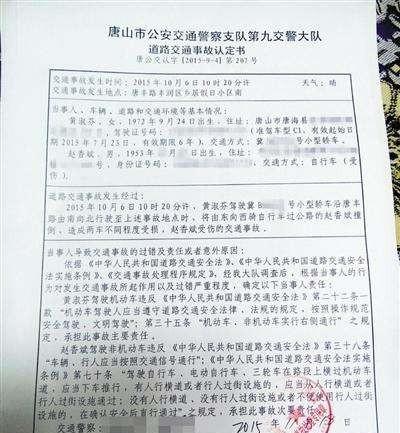 唐山市公安交通警察支队第九交警大队
道路交通事故认定书
唐公交认字[2015-9-4]第297号
交通事故发生时间：2015年10月6日10时20分许 天气：晴
交通事故发生地点：唐丰路丰润区乡居假日小区南
当事人、车辆、道路和交通环境等基本情况：
黄淑芬、女，1972年9月24日出生，住址：唐山唐海县
，驾驶证号码： （准驾车型C1，有效起始日
期2015年7月23日，有效期限6年），交通方式：冀B 号小型轿车。
赵香斌，男，1953年 日出生，住址：
，身份证号码： ，交通方式：自行车（受
伤）。
道路交通事故发生经过：
2015年10月6日10时20分许，黄淑芬驾驶冀B 号小型轿车沿唐丰
路由南向北行驶至上述事故地点时，将由东向西骑自行车过公路的赵香斌撞
倒，造成两车不同程度受损，赵香斌受伤的交通事故。
当事人导致交通事故的过错及责任或者意外原因：
依据《中华人民共和国道路交通安全法》、《中华人民共和国道路交通安
全法实施条例》、《交通事故处理程序规定》，经我大队调查后，根据当事人的行
为对发生交通事故所起作用以及过错严重程度，确定以下当事人责任：
黄淑芬驾驶机动车违反《中华人民共和国道路交通安全法》第二十二条一
款“机动车驾驶人应当遵守道路交通安全法律、法规的规定，按照操作规范
安全驾驶，文明驾驶”；第三十五条“机动车、非机动车实行右侧通行”之规
定，承担此事故主要责任。
赵香斌驾驶非机动车违反《中华人民共和国道路交通安全法》第三十八条
“车辆、行人应当按照交通信号通行”；《中华人民共和国道路交通安全法实施
条例》第七十条“驾驶自行车、电动自行车、三轮车在路段上横过机动车
道，应当下车推行，有人行横道或者行人过街设施的，应当从人行横道或者
行人过街设施通过；没有人行横道、没有行人过街设施或者不便使用行人过街设施
的，在确认安全后直行通过”之规定，承担此事故次要责任。
交通警察：
2015年